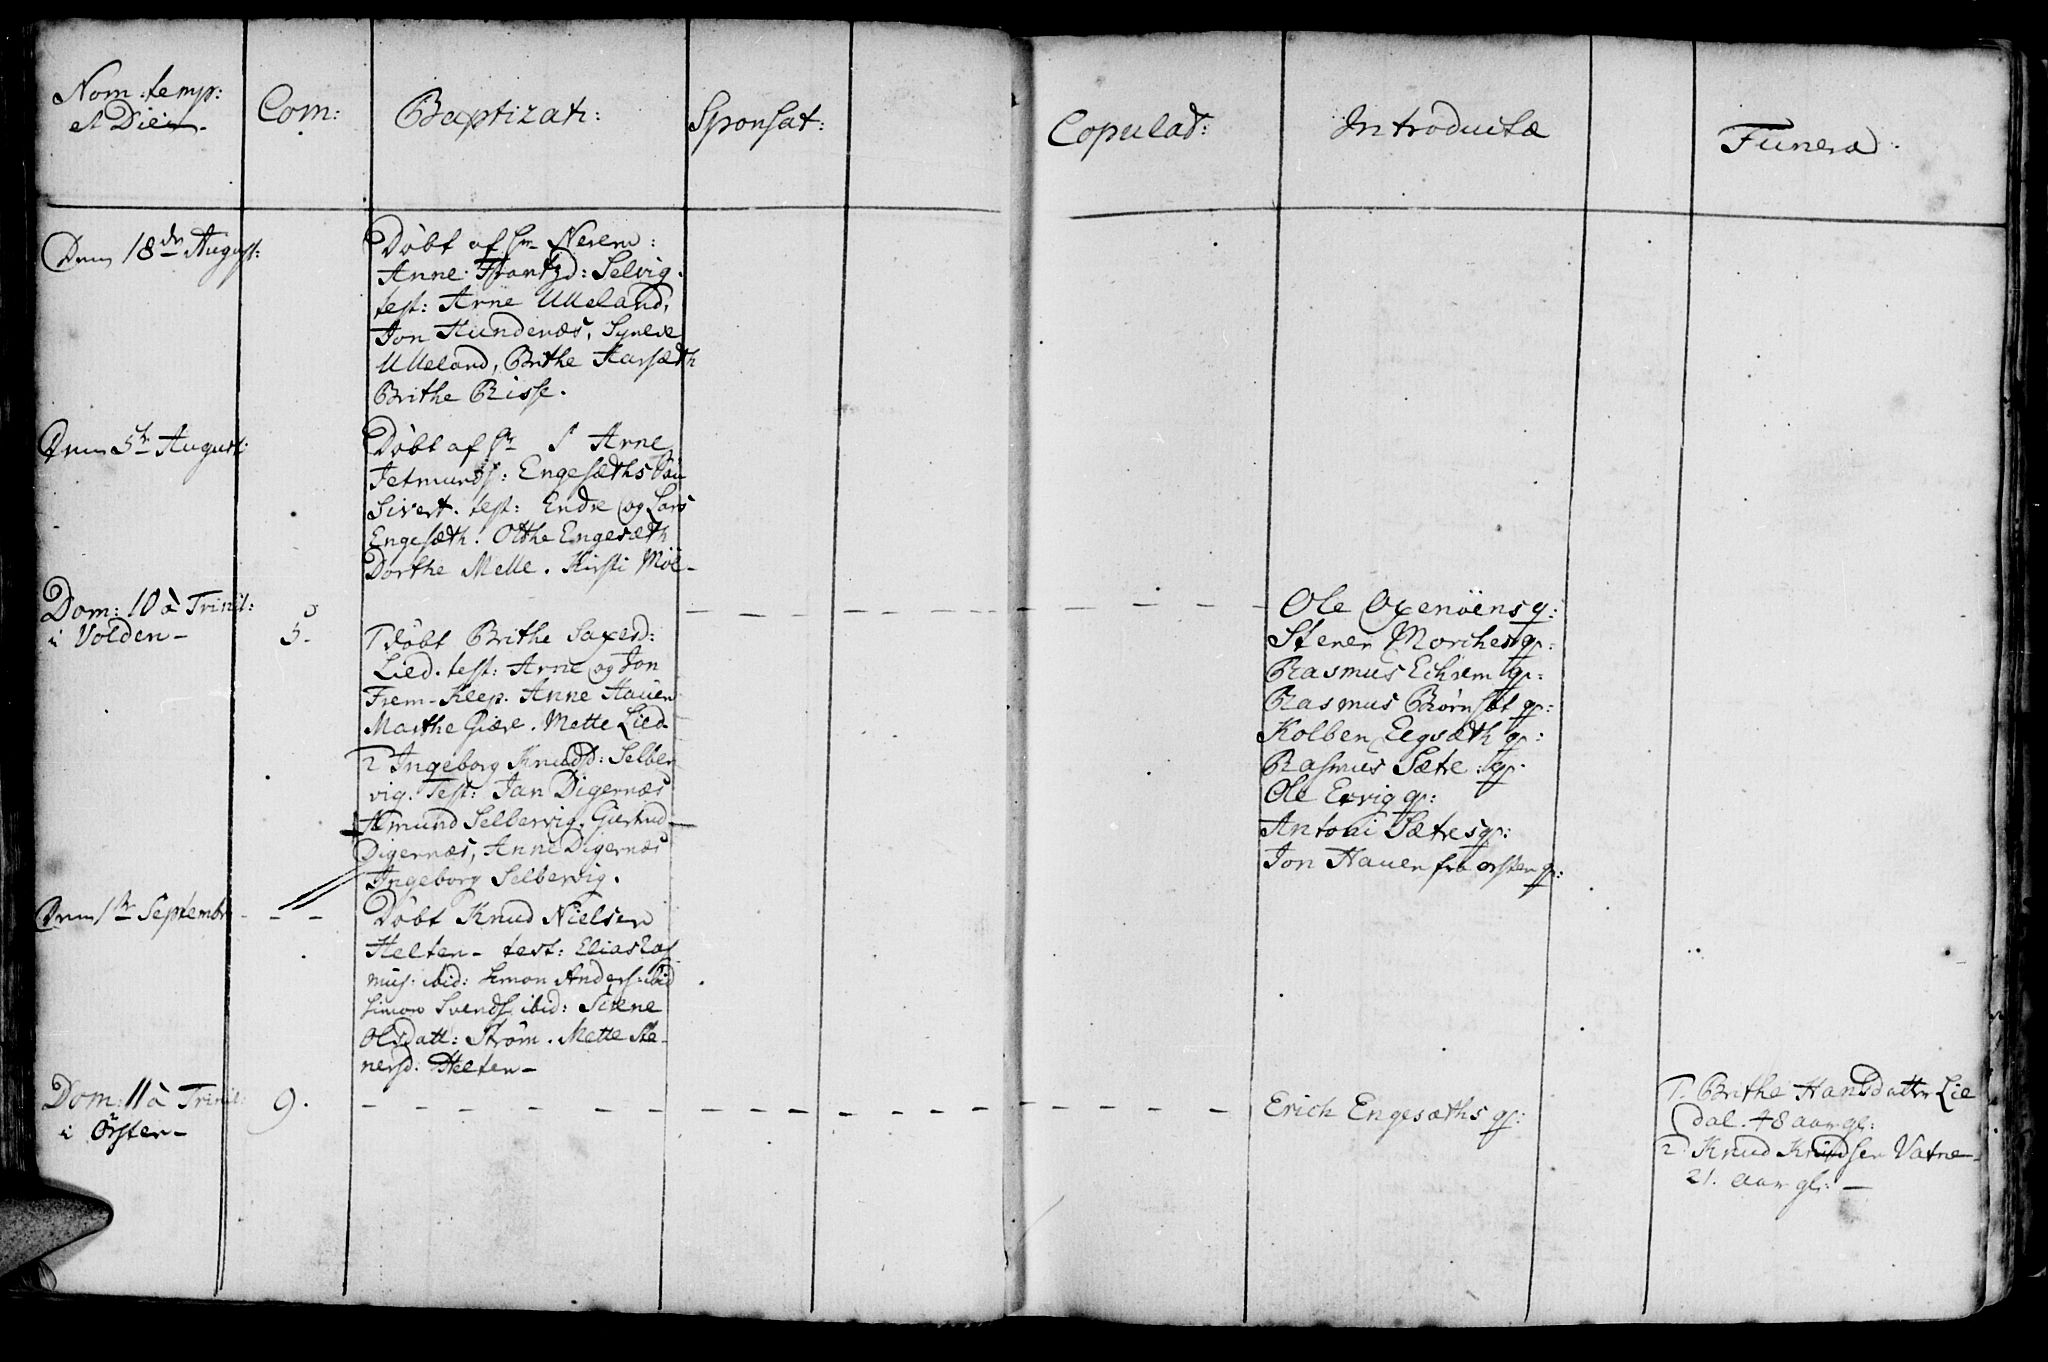 Nom: temp:
et Diei
Com:
Baptizati:
Sponsat:
Copulat:
Introductæ
Funerat:
Den 18de August:
Døbt af Hr
Anne Frantzd: Selvig.
test: Arne Ulleland,
Jon Hundenæs, Syneve
Ulleland, Brithe Harsæth
Brithe Risse.
Den 5te August:
Døbt af Hr Arne
Jetmunds: Engesæths
Sivert. test: Endre og Lars
Engesæth. Otthe Engesæth
Dorthe Melle. Kirsti
Dom: 10 à Trinit:
i Volden-
5.
1 døbt Brithe Saxesd:
Lied. test: Arne og Jon
Frem-Klep. Anne Hauen
Marthe Giære. Mette Lied.
2 Ingeborg Knudsd: Selber
vig. Test: Jan Digernæs
Amund Selbervig. Giertrud
Digernæs, Anne Digernæs
Ingeborg Selbervig.
Ole Oxenöens q:
Stener Morches q:
Rasmus Echrem q:
Rasmus Børnsæt q:
Kolben Eegsæth q:
Rasmus Sætre: q:
Ole Ervig q:
Antoni Sætres q:
Jon Hauen fra Ørsten q:
Den 1te Septembr - - -
Døbt Knud Nielsen
Helten- test: Elias Ras
mus: ibid: Simon Anders: ibid
Simon Svends ibid: Sirene
Olsdatt: Strøm. Mette Ste-
nersd: Helten-
Dom: 11 à Trinit:
i Ørsten-
9.
Erich Engesæths q:
1. Brithe Hansdatter Lie
dal. 48 aar gl:
2. Knud Knudsen Vatne-
21. aar gl: -